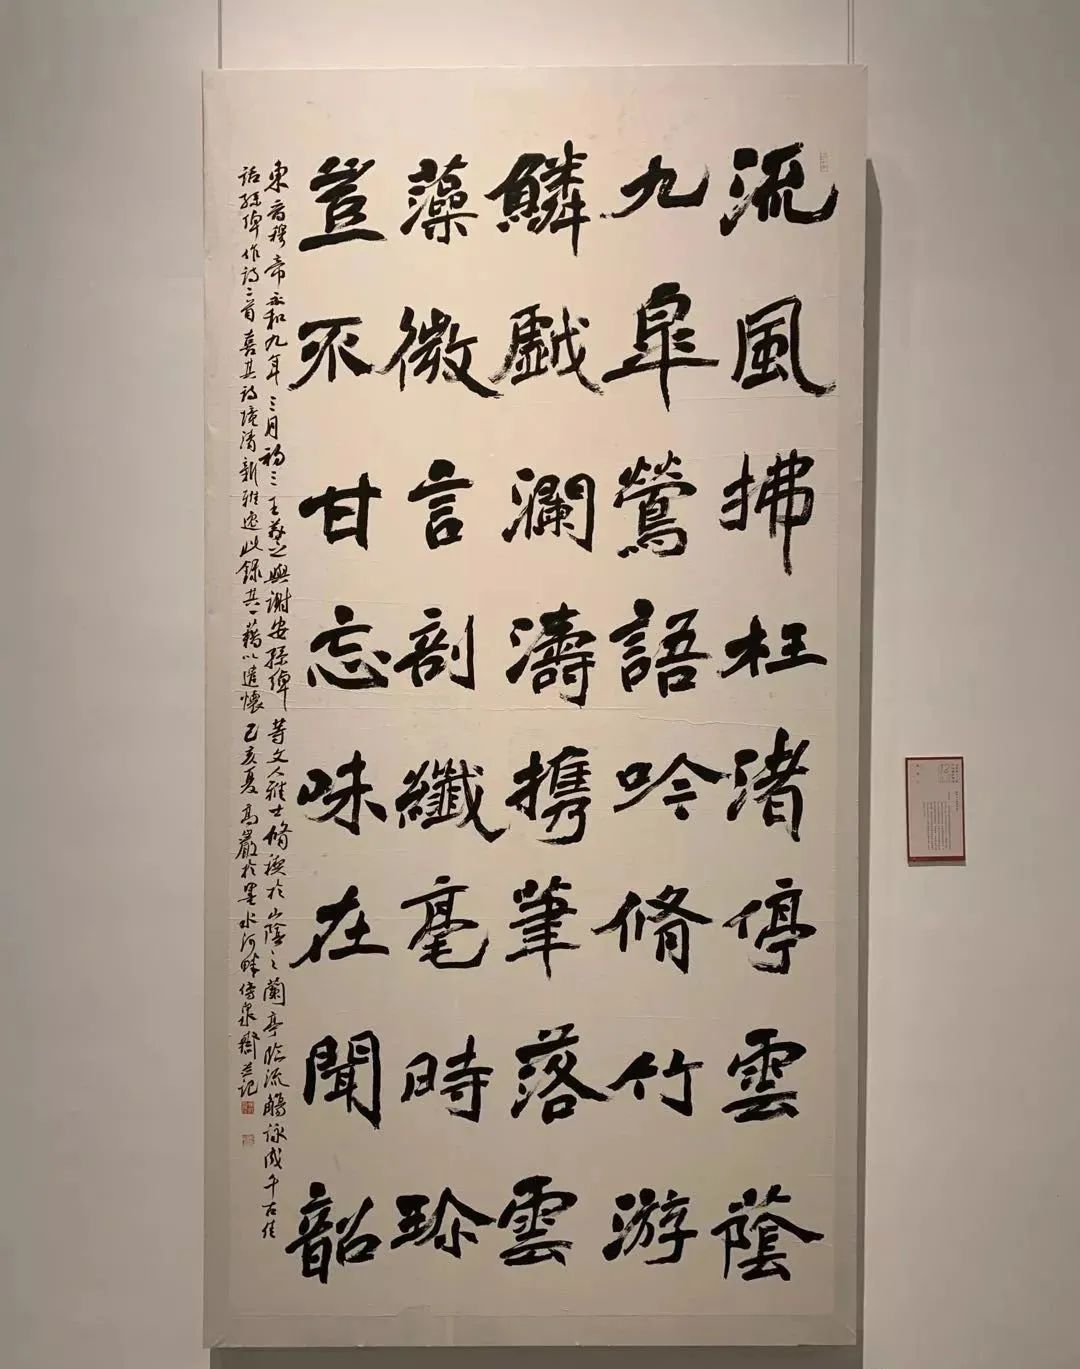 流風拂枉渚停雲蔭
九皐鶯語吟脩竹游
鱗戲瀾濤攜筆落雲
藻微言剖纖毫時珍
豈不甘忘味在聞韶
東晉穆帝永和九年三月初三王羲之與謝安孫綽等文人雅士脩禊於山陰之蘭亭臨流觴詠成千古佳
話孫綽作詩二首喜其詩境清新雅逸此錄其一藉以遣懷己亥夏高巖於墨水河畔傍泉齋并記